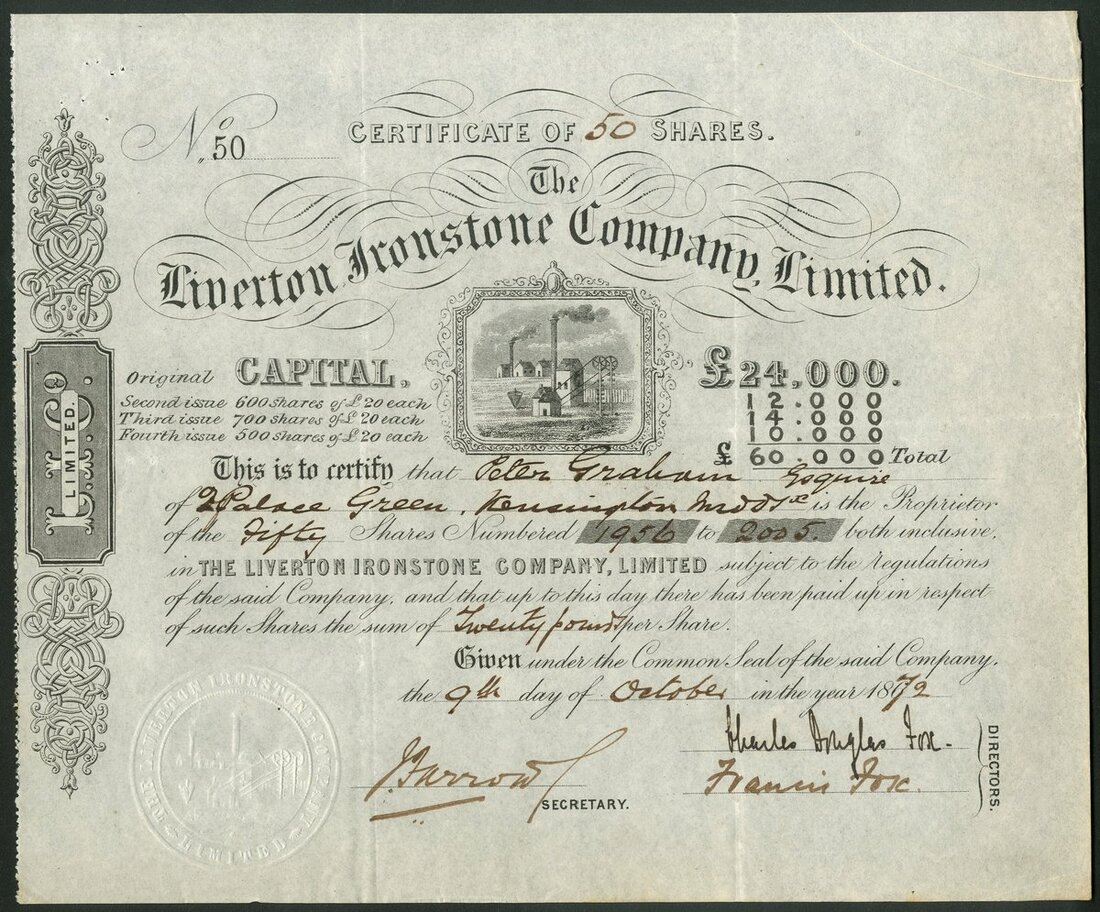 No. 50
CERTIFICATE OF 50 SHARES.
The
Liverton Ironstone Company, Limited.
Original CAPITAL, £24,000.
Second issue 600 shares of £20 each 12.000
Third issue 700 shares of £20 each 14.000
Fourth issue 500 shares of £20 each 10.000
£ 60.000 Total
This is to certify that Peter Graham Esquire
of 2 Palace Green, Kensington Middsx is the Proprietor
of the Fifty Shares Numbered 1956 to 2005. both inclusive,
in THE LIVERTON IRONSTONE COMPANY, LIMITED subject to the regulations
of the said Company, and that up to this day there has been paid up in respect
of such Shares the sum of Twenty pounds per Share.
Given under the Common Seal of the said Company,
the 9th day of October in the year 1872
Charles Douglas Fox.
Francis Fox.
DIRECTORS.
J. Barrow
SECRETARY.
L.I.Co.
LIMITED.
THE LIVERTON IRONSTONE COMPANY
LIMITED